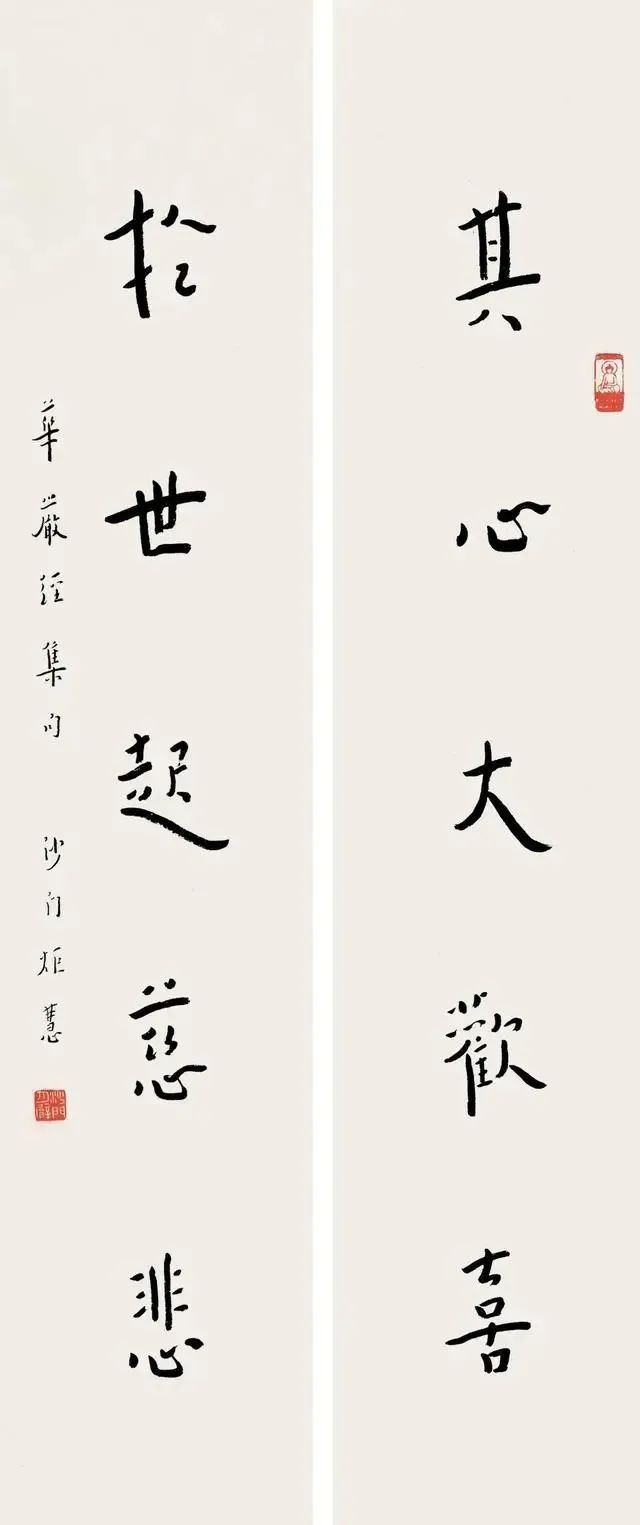 其心大歡喜
於世起慈悲
華嚴經集句 沙門炬慧
沙門